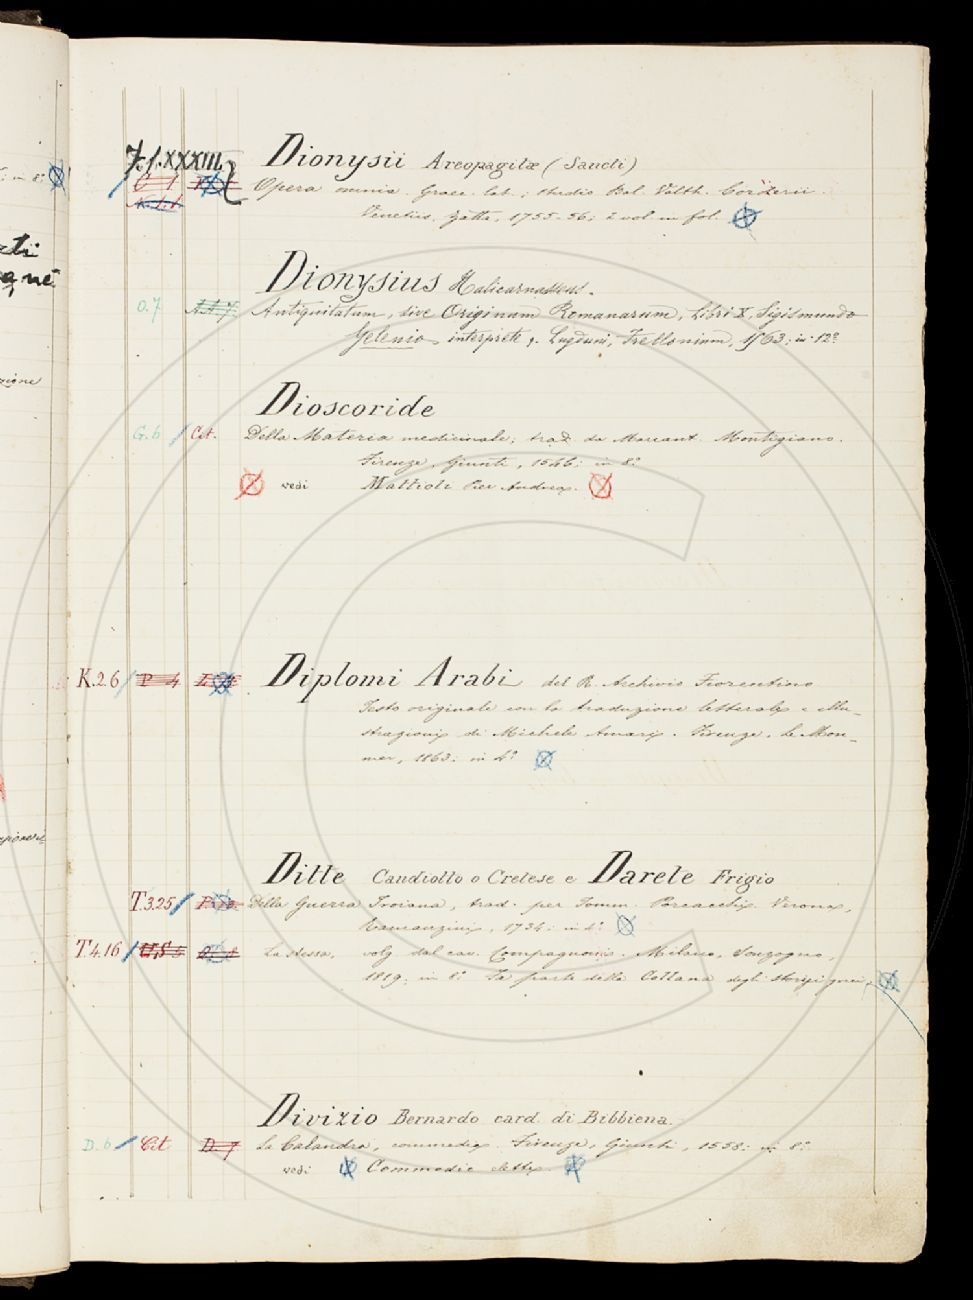 7.1.XXXIII.
Dionysii Areopagitæ (Sancti)
Opera omnia. Graec. lat.; studio Bal. Corderii.
Venetiis, Zatta, 1755-56; 2 vol. in fol.
Dionysius Halicarnasseus.
O.7 Antiquitatum, sive Originum Romanarum, Libri X, Sigismundo
Gelenio interprete. Lugduni, 1563; in-12º
Dioscoride
G.6 Cit. Della Materia medicinale; trad. da Marcant. Montigiano.
Firenze, Giunti, 1546; in 8º
vedi Mattioli Pier Andrea.
K.2.6 P 4 Diplomi Arabi del R. Archivio Fiorentino
Testo originale con la traduzione letterale e illu-
strazioni di Michele Amari. Firenze, Le Mon-
nier, 1863; in 4º
Ditte Candiotto o Cretese e Darete Frigio
T.3.25 Della Guerra Troiana, trad. per Tomm. Porcacchi. Verona,
Ramanzini, 1734; in 4º
T.4.16 La stessa, volg. dal cav. Compagnoni. Milano, Sonzogno,
1819; in 8º Fa parte della Collana degli storici greci.
Divizio Bernardo card. di Bibbiena.
D.6 Cit D.7 La Calandra, commedia. Firenze, Giunti, 1558; in 8º
vedi Commedie